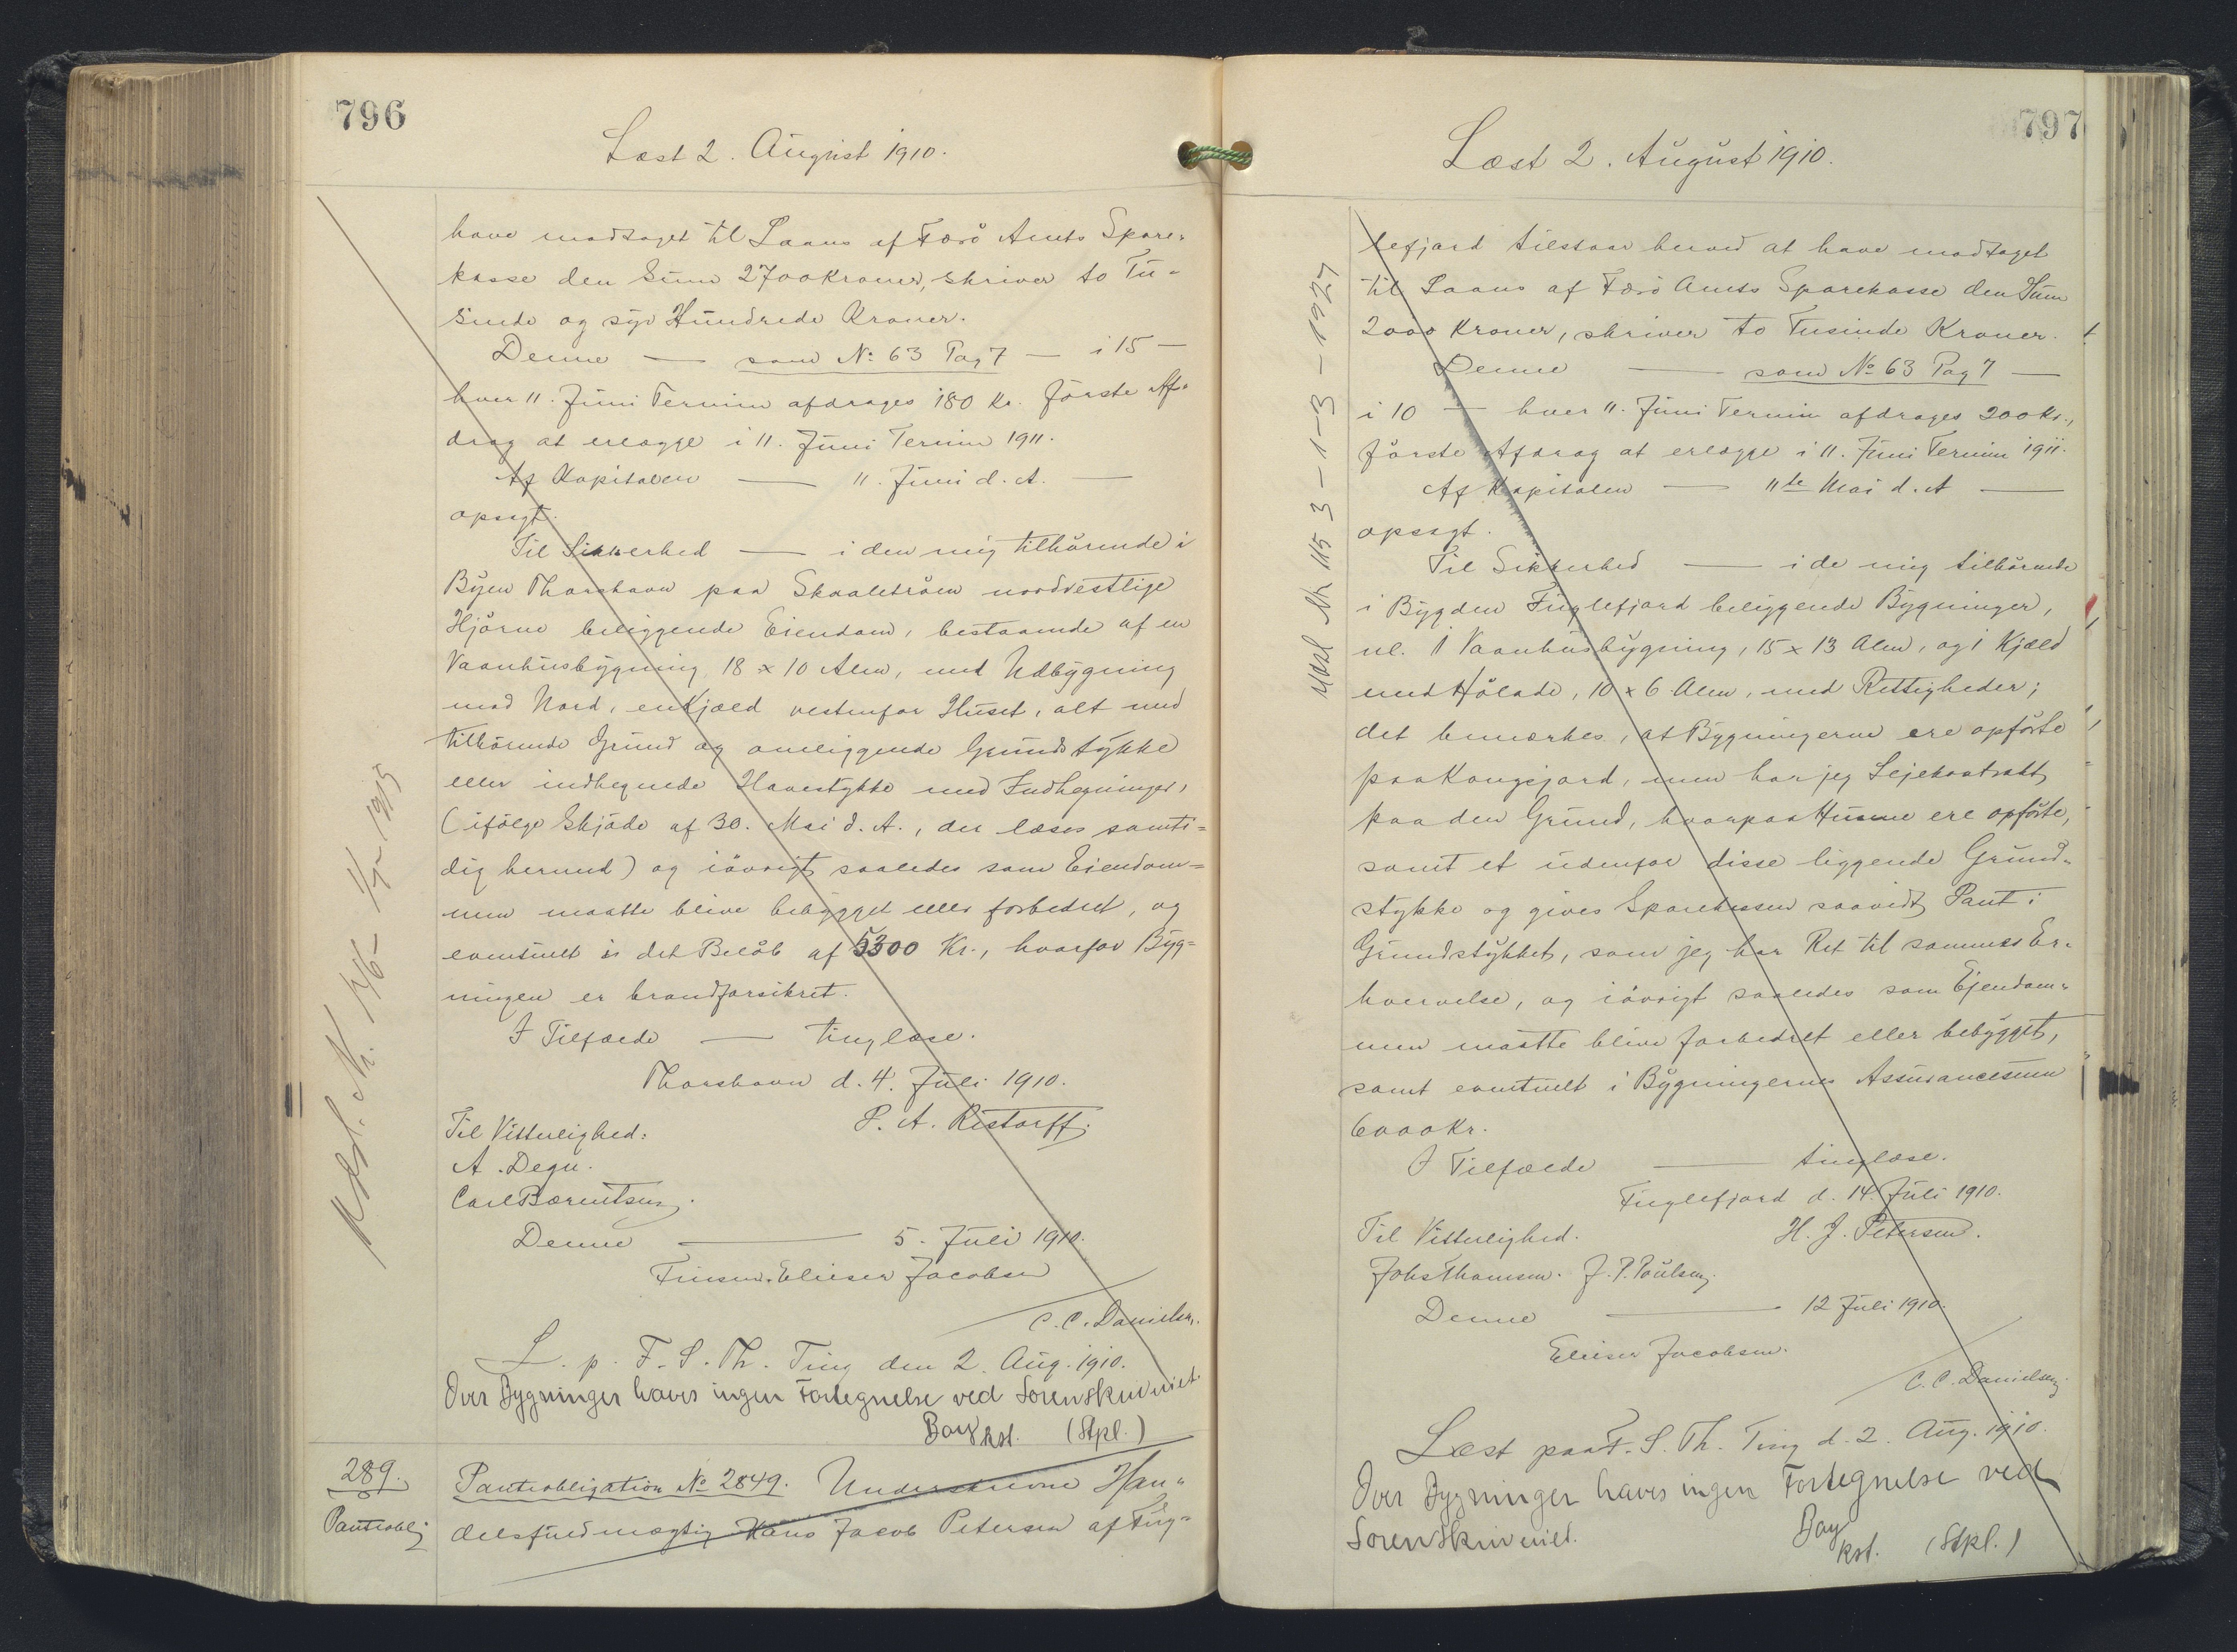 796
Læst 2. August 1910.
have modtaget til Laans af Færø Amts Spare-
kasse den Sum 2700 Kroner, skriver to Tu-
sinde og syv Hundrede Kroner.
Denne — som No 63 Pag 7 — i 15 —
hver 11. Juni Termin afdrages 180 Kr. Første Af-
drag at erlægge i 11. Juni Termin 1911.
Af Kapitalen — 11. Juni d. A. —
opsagt.
Til Sikkerhed — i den mig tilhørende i
Byen Thorshavn paa Skaaletrøen nordvestlige
Hjørne beliggende Eiendom, bestaaende af en
Vaanhusbygning, 18 x 10 Alen, med Udbygning
mod Nord, en Kjæld vestenfor Huset, alt med
tilhørende Grund og omliggende Grundstykke
eller indhegnede Havestykke med Indhegninger,
(ifølge Skjøde af 30. Mai d. A., der læses samti-
dig hermed) og iøvrigt saaledes som Eiendom-
men maatte blive bebygget eller forbedret, og
eventuelt i det Beløb af 5300 Kr., hvorfor Byg-
ningen er brandforsikret.
I Tilfælde — tinglæse.
Thorshavn d. 4. Juli 1910.
Til Vitterlighed: P. A. Ristorff.
A. Degn.
Carl Bærentsen.
Denne — 5. Juli 1910.
Finsen. Elieser Jacobsen
C. C. Danielsen.
L. p. F. S. Th. Ting den 2. Aug. 1910.
Over Bygninger haves ingen Fortegnelse ved Sorenskriveriet.
Bay kst. (Stpl.)
289.
Pantobl.
Pantobligation No 2849. Underskrevne Han-
delsfuldmægtig Hans Jacob Petersen af Fug-
797
Læst 2. August 1910.
lefjord tilstaar herved at have modtaget
til Laans af Færø Amts Sparekasse den Sum
2000 Kroner, skriver to Tusinde Kroner.
Denne — som No 63 Pag 7 —
i 10 — hver 11. Juni Termin afdrages 200 Kr.,
første Afdrag at erlægge i 11. Juni Termin 1911.
Af Kapitalen — 11te Mai d. A —
opsagt.
Til Sikkerhed — i de mig tilhørende
i Bygden Fuglefjord beliggende Bygninger,
nl. 1 Vaanhusbygning, 15 x 13 Alen, og 1 Kjæld
med Hølade, 10 x 6 Alen, med Rettigheder;
det bemærkes, at Bygningerne ere opførte
paa Kongsjord, men har jeg Lejekontrakt
paa den Grund, hvorpaa Husene ere opførte,
samt et udenfor disse liggende Grund-
stykke og gives Sparekassen saavidt Pant i
Grundstykket, som jeg har Ret til sammes Er-
hvervelse, og iøvrigt saaledes som Ejendom-
men maatte blive forbedret eller bebygget,
samt eventuelt i Bygningernes Assurancesum
6000 Kr.
I Tilfælde — tinglæse.
Fuglefjord d. 14. Juli 1910.
Til Vitterlighed. H. J. Petersen.
Johs Thomsen. J. P. Poulsen.
Denne — 12 Juli 1910.
Elieser Jacobsen.
C. C. Danielsen.
Læst paa F. S. Th. Ting d. 2. Aug. 1910.
Over Bygninger haves ingen Fortegnelse ved
Sorenskriveriet.
Bay kst. (Stpl.)